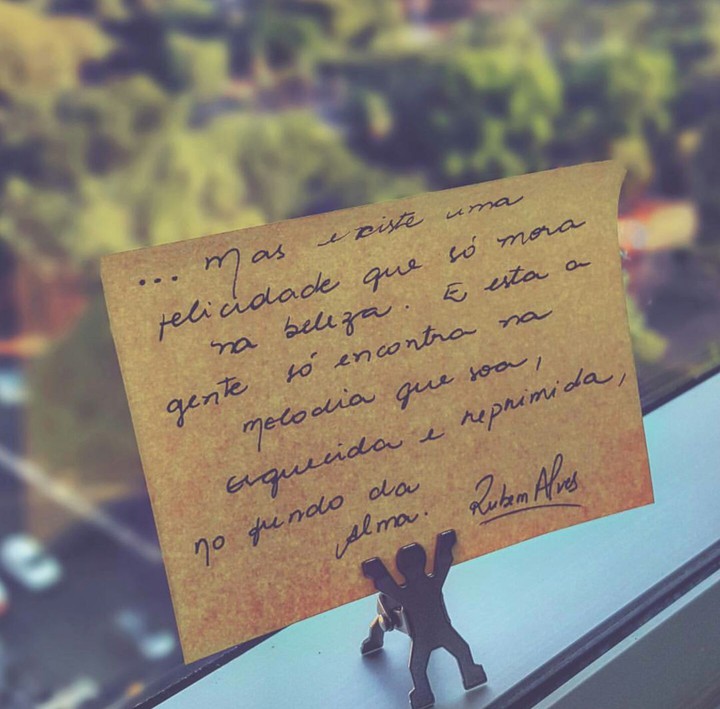 ... Mas existe uma
felicidade que só mora
na beleza. E esta a
gente só encontra na
melodia que soa,
esquecida e reprimida,
no fundo da
alma. Rubem Alves